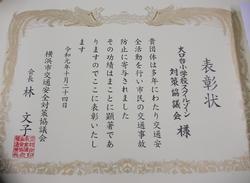 表彰状
大口台小学校スクールゾーン
対策協議会 様
貴団体は多年にわたり交通安
全活動を行い市民の交通事故
防止に寄与されました
その功績はまことに顕著であ
りますのでここに表彰いたし
ます
令和元年十月二十四日
横浜市交通安全対策協議会
会長 林 文子